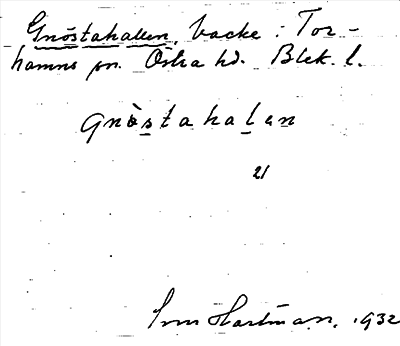 Gnöstahallen, backe i Tor-
hamns sn. Östra hd. Blek. l.
gnòstahalen
21
Sven Hartman. 1932